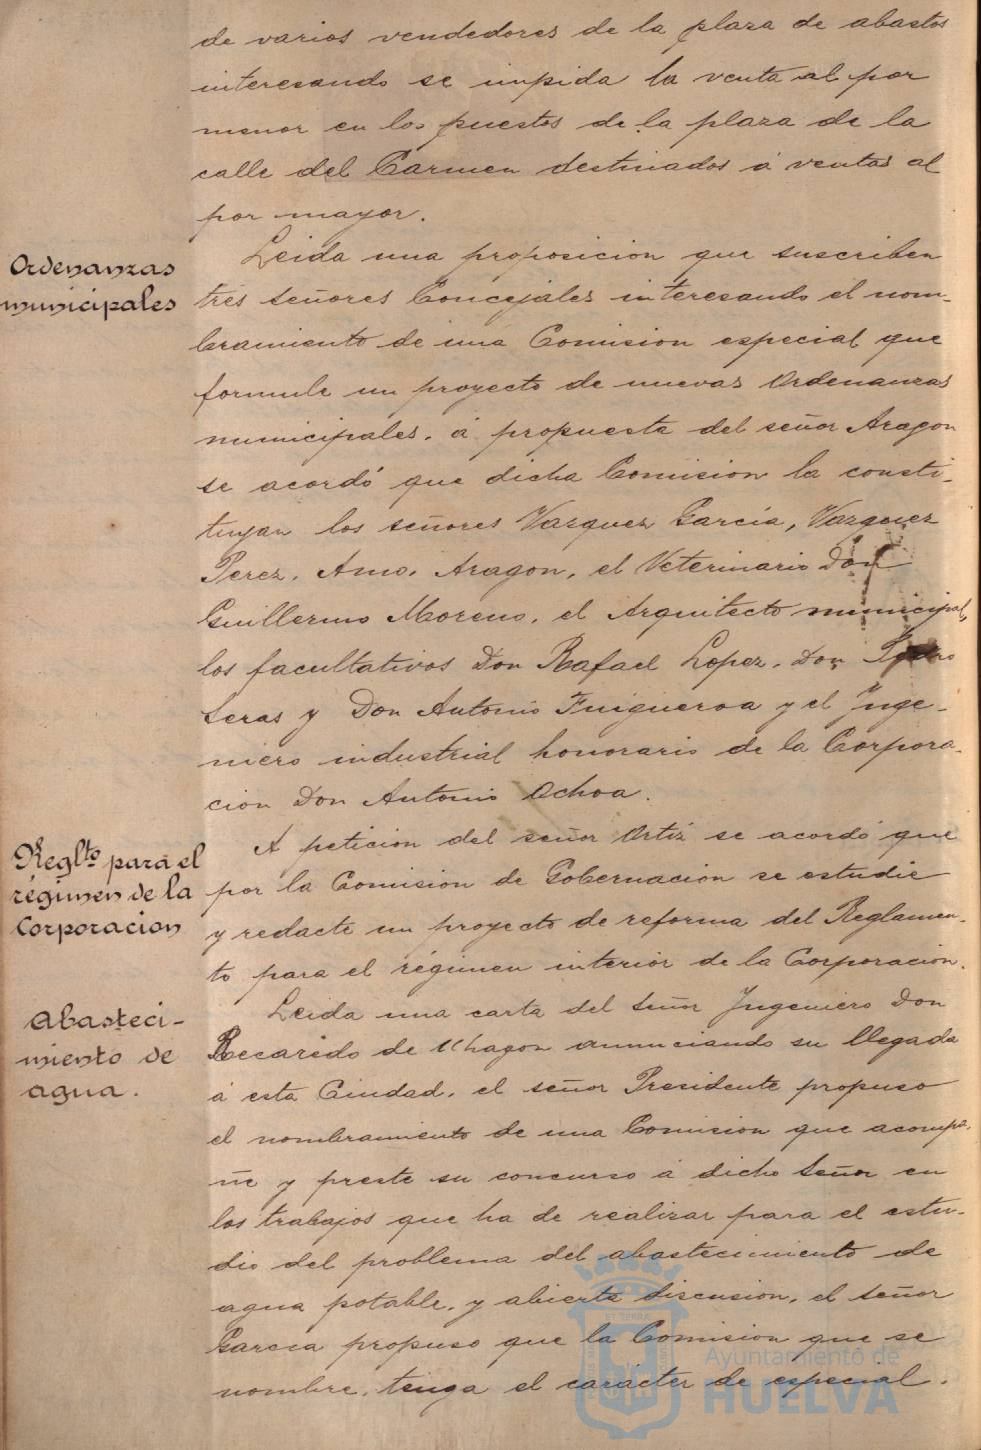 de varios vendedores de la plaza de abastos
interesando se impida la venta al por
menor en los puestos de la plaza de la
calle del Carmen destinados á ventas al
por mayor.
Ordenanzas
municipales
Leida una proposicion que suscriben
tres señores Concejales interesando el nom-
bramiento de una Comision especial que
formule un proyecto de nuevas Ordenanzas
municipales, á propuesta del señor Aragon
se acordó que dicha Comision la consti-
tuyan los señores Vazquez García, Vazquez
Perez, Amo, Aragon, el Veterinario Don
Guillermo Moreno, el Arquitecto municipal,
los facultativos Don Rafael Lopez, Don Pedro
Seras y Don Antonio Fuigueroa y el Inge-
niero industrial honorario de la Corpora-
cion Don Antonio Ochoa.
Reglto para el
régimen de la
Corporacion
A peticion del señor Ortiz se acordó que
por la Comision de Gobernacion se estudie
y redacte un proyecto de reforma del Reglamen-
to para el régimen interior de la Corporacion.
Abasteci-
miento de
agua.
Leida una carta del señor Ingeniero Don
Recaredo de Uhagon anunciando su llegada
á esta Ciudad, el señor Presidente propuso
el nombramiento de una Comision que acompa-
ñe y preste su concurso á dicho Señor en
los trabajos que ha de realizar para el estu-
dio del problema del abastecimiento de
agua potable, y abierta discusion, el señor
Garcia propuso que la Comision que se
nombre, tenga el carácter de especial.
Ayuntamiento de
HUELVA